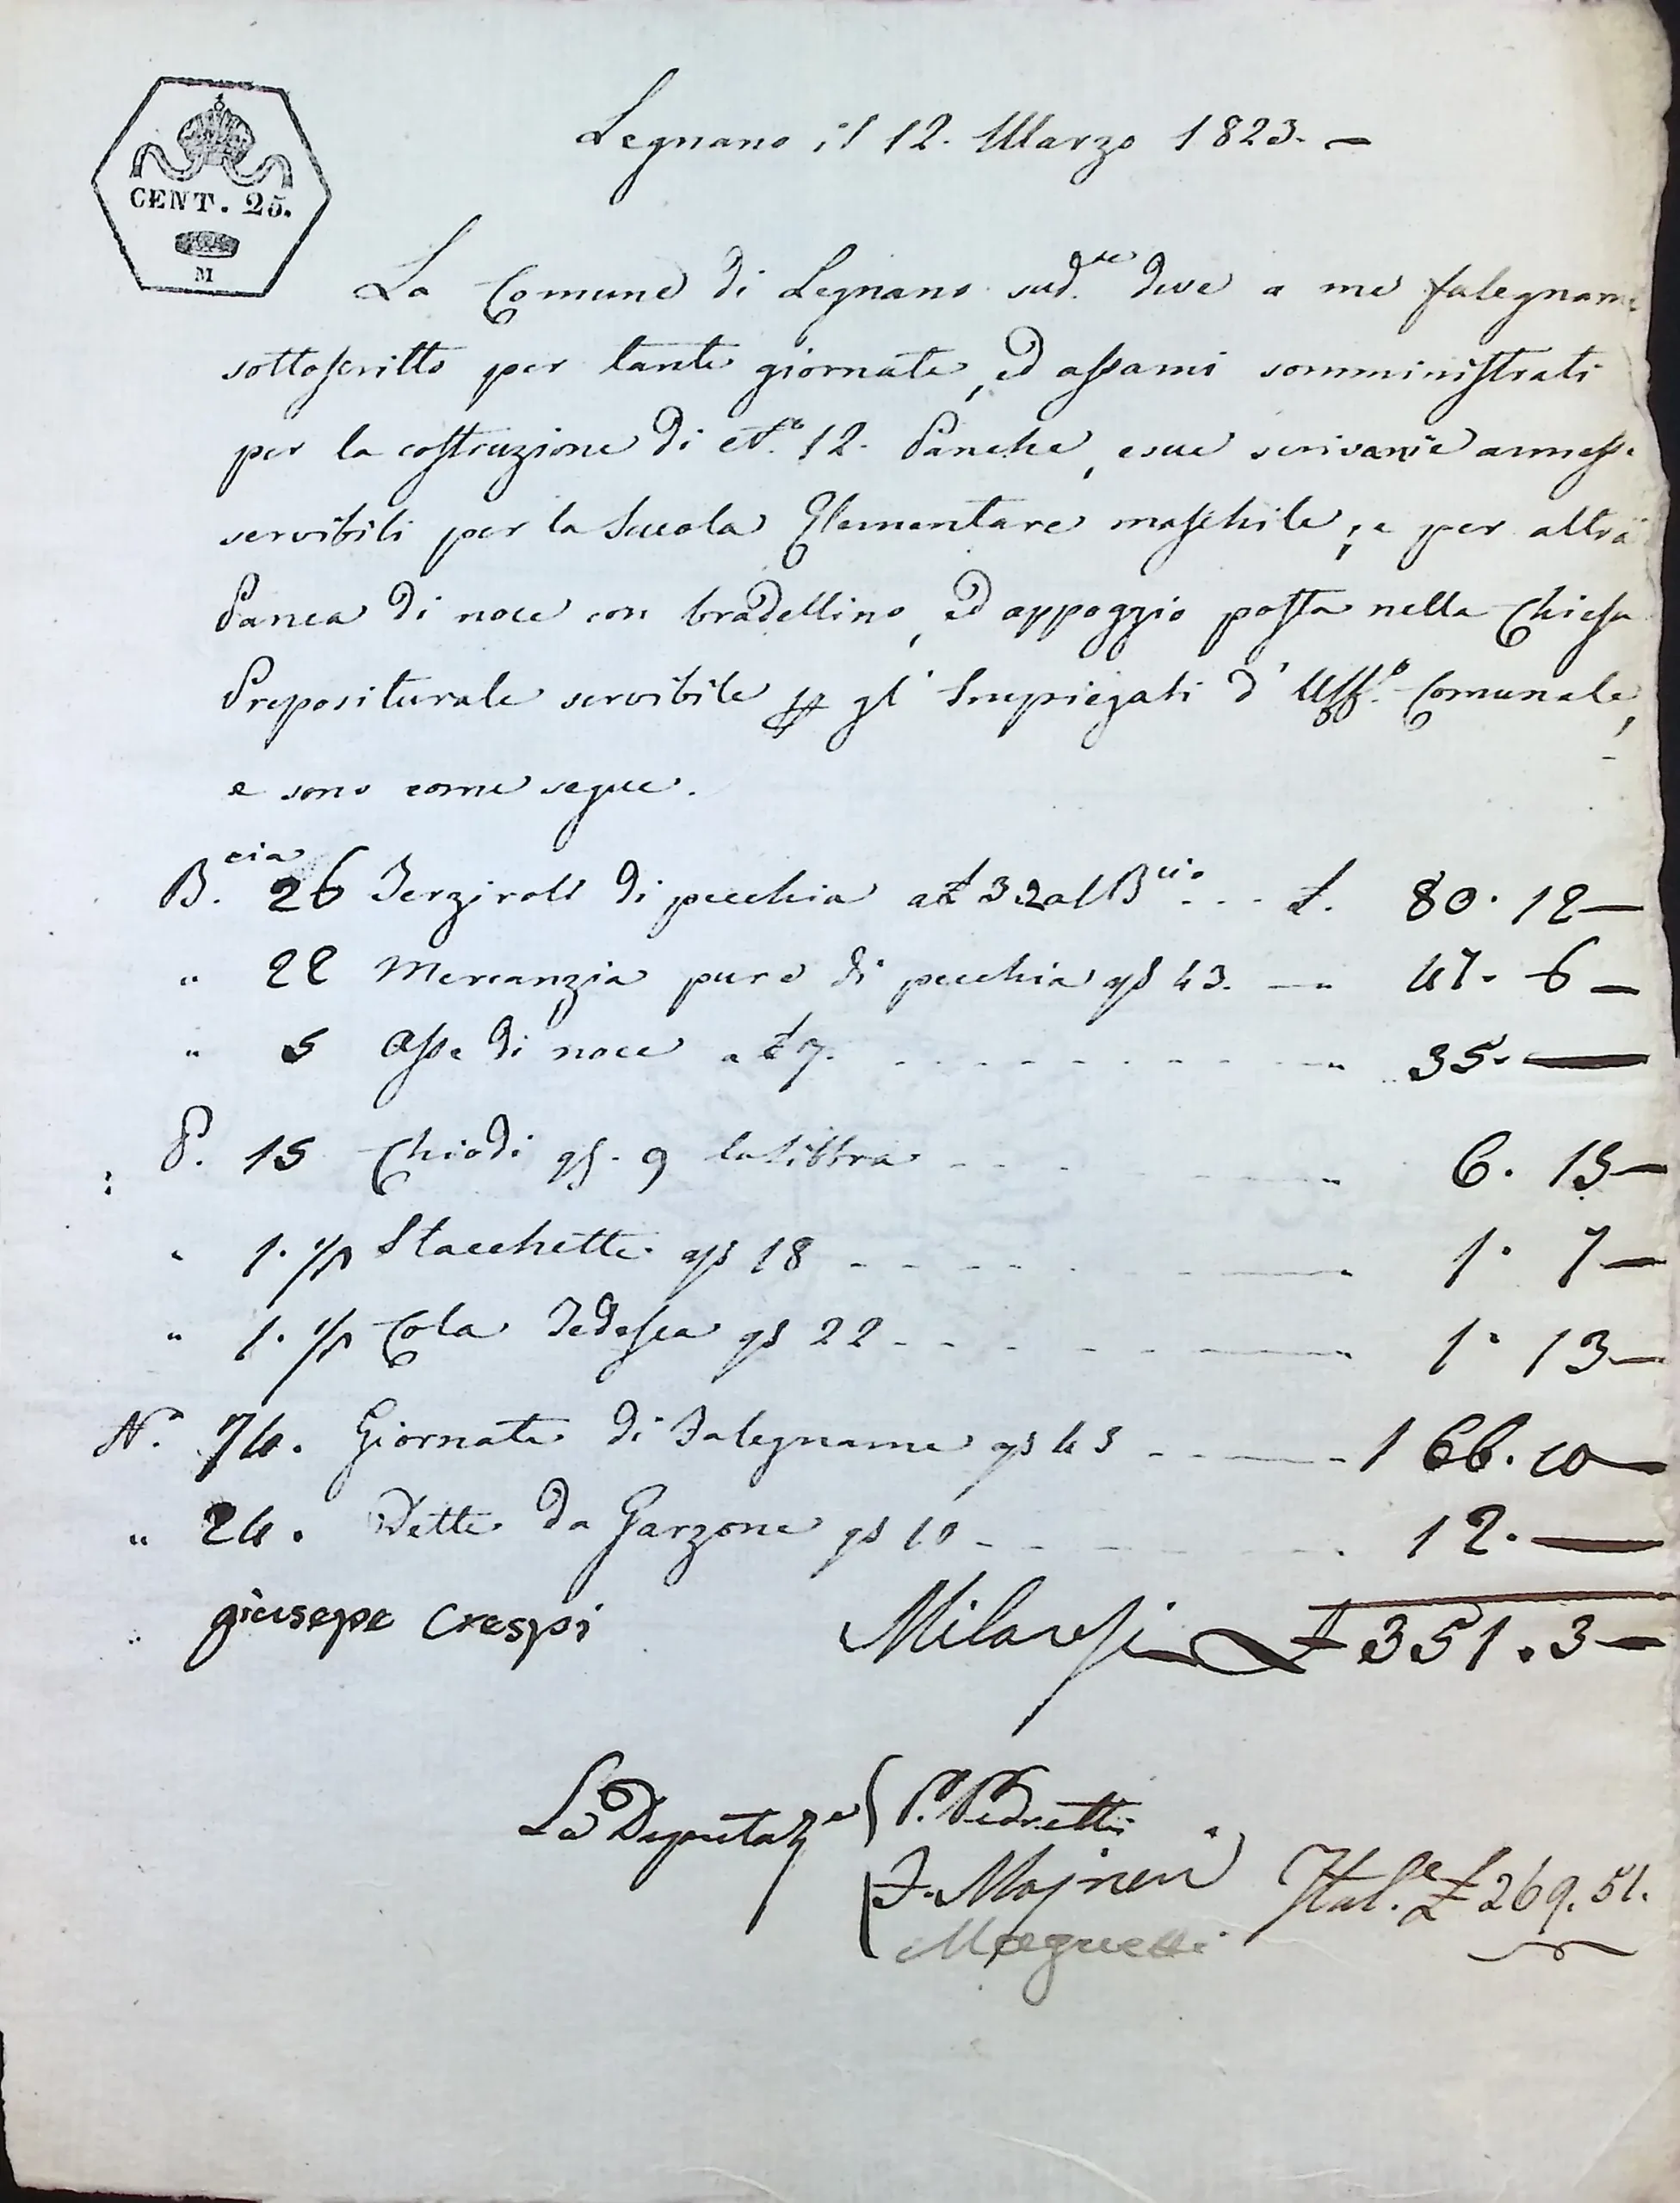 CENT. 25.
M
Legnano il 12. Marzo 1823. —
La Comune di Legnano sud.te deve a me falegname
sottoscritto per tante giornate, ed assami somministrati
per la costruzione di N.o 12. Panche, e sue scrivanie annesse
servibili per la Scuola Elementare maschile; e per altra
Panca di noce con bradellino, ed appoggio posta nella Chiesa
Prepositurale servibile per gl' Impiegati d' Uff.o Comunale,
e sono come segue.
B.cia 26 Terziroli di pecchia a £ 3.2 al B.cio - - - £. 80. 12 —
" 22 Mercanzia pure di pecchia a s 43. — " 47. 6 —
" 5 Asse di noce a £ 7. - - - - - " 35. —
P. 15 Chiodi a s. 9 la Libbra - - - " 6. 15 —
" 1. 1/2 Stacchette a s 18 - - - - " 1. 7 —
" 1. 1/2 Cola Tedesca a s 22 - - - - " 1. 13 —
N.o 74. Giornate di Falegname a s 45 - - - 166. 10 —
" 24. Dette da Garzone a s 10 - - - - 12. —
giuseppe Crespi Milanesi £ 351. 3 —
La Deputaz.e P. Pedretti
F. Majneri Ital.e £ 269. 51.